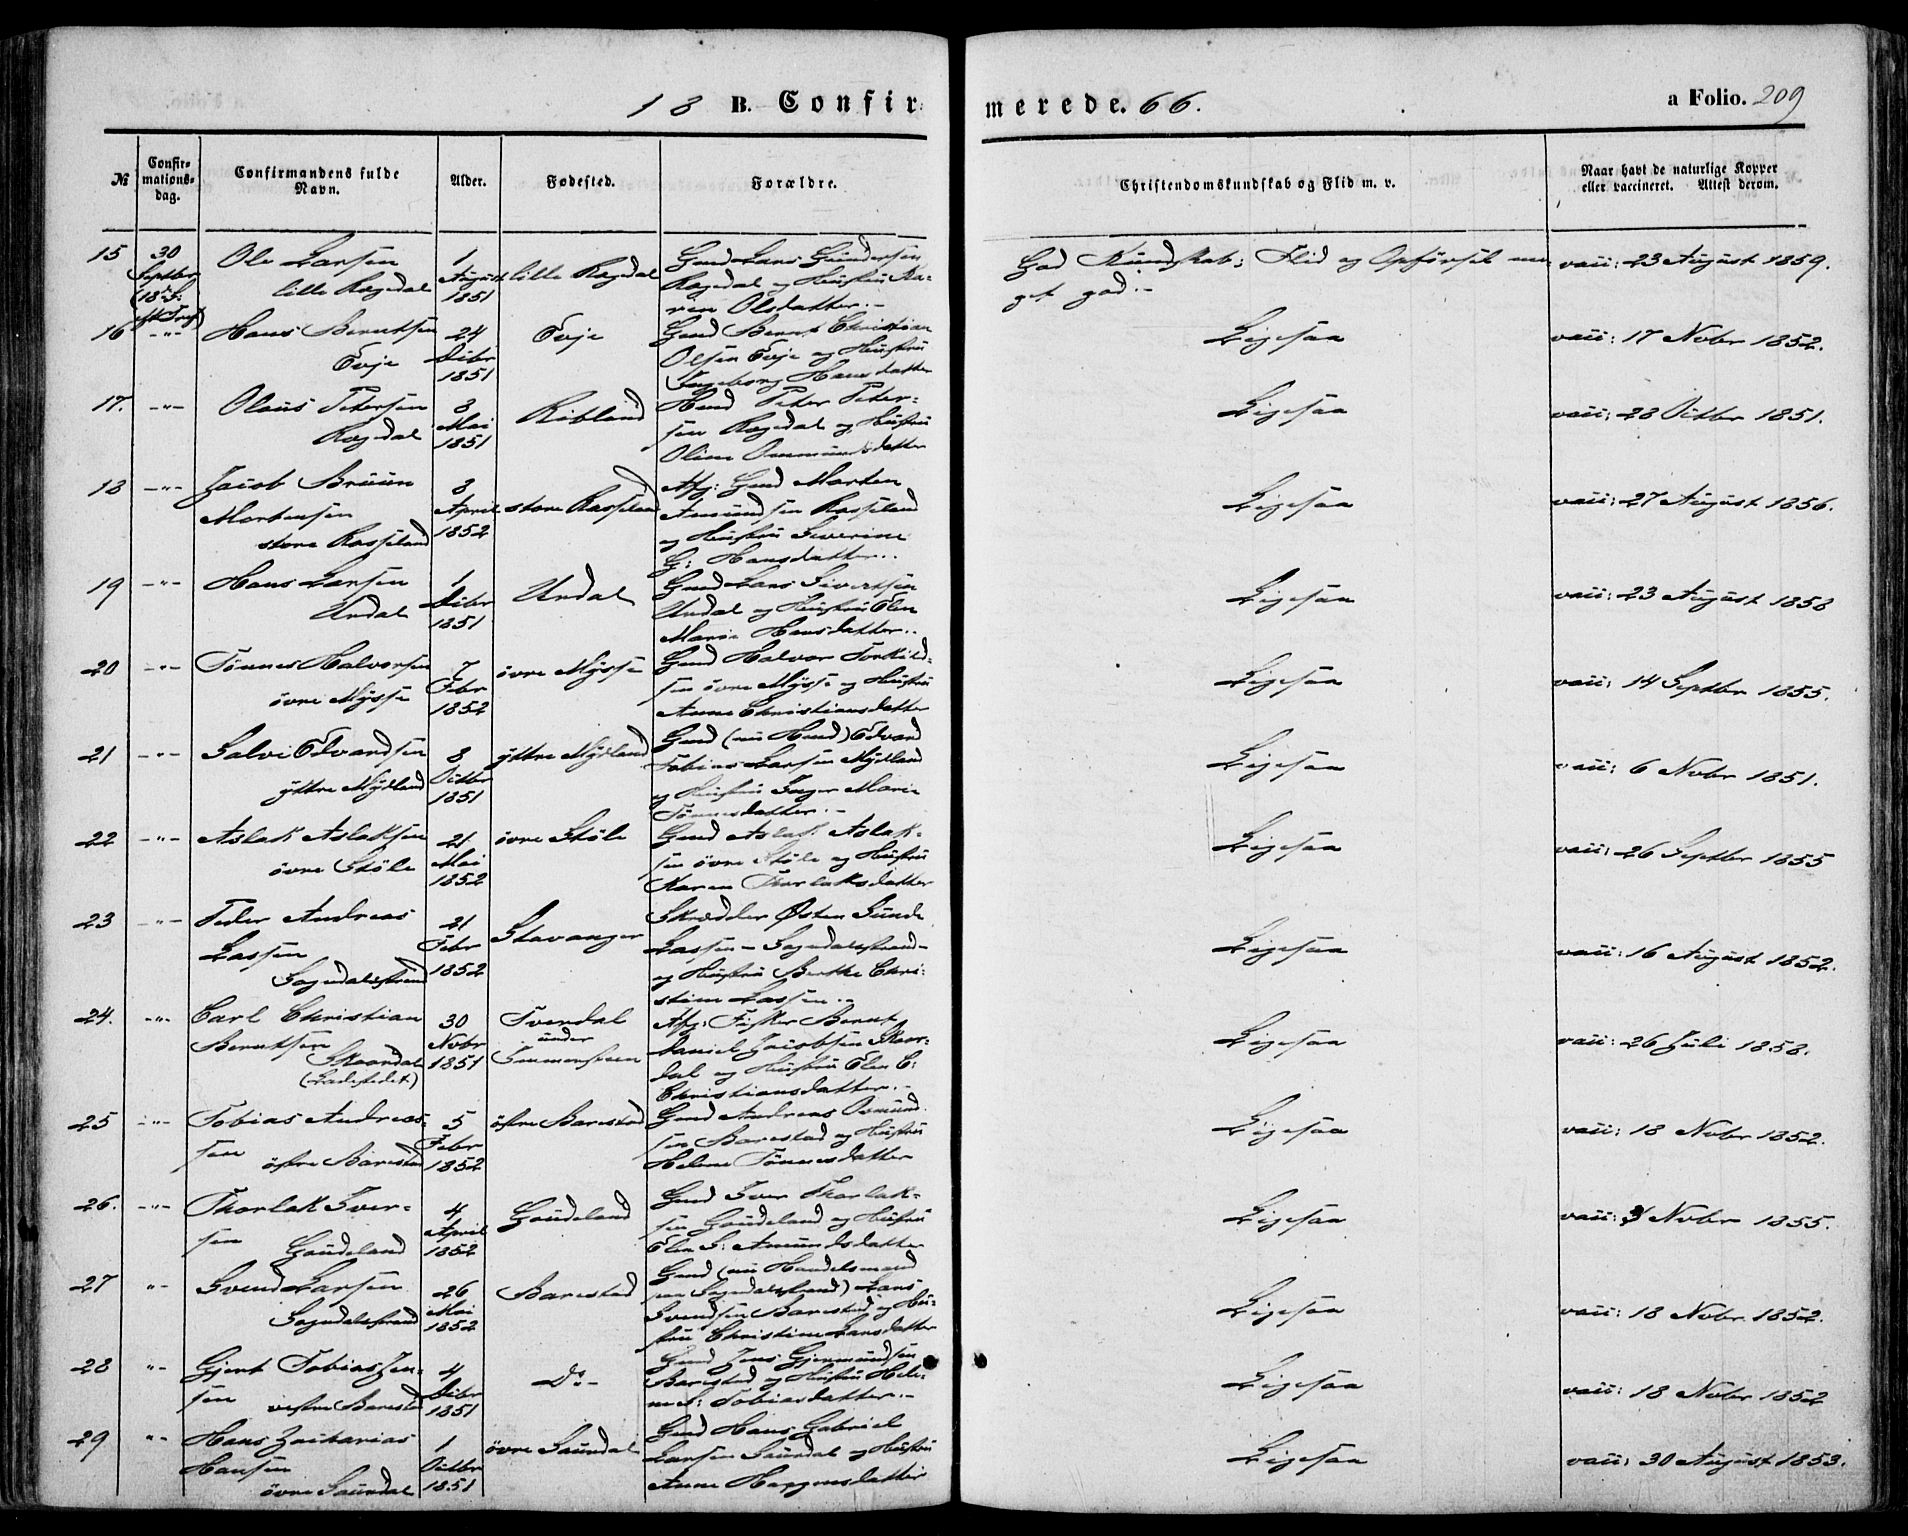 18 B. Confirmerede. 66.
a Folio. 209
№
Confir-
mations-
dag.
Confirmandens fulde
Navn.
Alder.
Fødested.
Forældre.
Christendomskundskab og Flid m. v.
Naar havt de naturlige Kopper
eller vaccineret. Attest derom.
15
30
Septbr
(18de S:
eft Tref)
Ole Larsen
lille Rægdal
1
August
1851
lille Rægdal
Gmd Lars Gundersen
Rægdal og Hustru Ka-
ren Olsdatter.-
God Kundskab; Flid og Opførsel me-
get god.-
vacc: 23 August 1859.
16
-"-
Hans Berntsen
Evje
24
Decbr
1851
Evje
Gmd Bernt Christian
Olsen Evje og Hustru
Ingeborg Hansdatter
Ligesaa
vacc: 17 Novbr 1852.
17.
-"-
Olaus Petersen
Rægdal
3
Mai
1851
Ribland
Hmd Peter Peter-
sen Rægdal og Hustru
Oline Ommundsdatter
Ligesaa
vacc: 28 Octbr 1851.
18
-"-
Jacob Bruun
Mortensen
store Rosseland
3
April
1852
store Rosseland
Afg: Gmd Morten
Amundsen Rosseland
og Hustru Severine
G: Hansdatter..
Ligesaa
vacc: 27 August 1856.
19
-"-
Hans Larsen
Urdal
1
Decbr
1851
Urdal
Gmd Lars Sivertsen
Urdal og Hustru Elen
Marie Hansdatter..
Ligesaa
vacc: 23 August 1858
20
-"-
Tönnes Halvorsen
övre Mysse
7
Febr
1852
övre Mysse
Gmd Halvor Torkild-
sen övre Mysse og Hustru
Anne Christiansdatter
Ligesaa
vacc: 14 Septbr 1855.
21
-"-
Salve Edvardsen
yttre Mydland
8
Octbr
1851
yttre Mydland
Gmd (nu Hmd) Edvard
Tobias Larsen Mydland
og Hustru Inger Marie
Tönnesdatter.-
Ligesaa
vacc: 6 Novbr 1851.
22
-"-
Aslak Aslaksen
övre Stöle
21
Mai
1852
övre Stöle
Gmd Aslak Aslak-
sen övre Stöle og Hustru
Karen Thorlaksdatter
Ligesaa
vacc: 26 Septbr 1855
23
-"-
Peder Andreas
Lassen
Sogndalsstrand
21
Febr
1852
Stavanger
Skrædder Østen Sunde
Lassen - Sogndalsstrand-
og Hustru Berthe Chri-
stine Lassen.-
Ligesaa
vacc: 16 August 1852.
24.
-"-
Carl Christian
Berntsen
Skaardal
(Ladestedet)
30
Novbr
1851
Tverdal
under
Immerstein
Afg: Fisker Bernt
Daniel Jacobsen Skor-
dal og Hustru Elen C:
Christiansdatter.-
Ligesaa
vacc: 26 Juli 1858.
25
-"-
Tobias Andreas-
sen
östre Barestad
5
Febr
1852
östre Barestad
Gmd Andreas Osmund-
sen Barestad og Hustru
Helene Tönnesdatter
Ligesaa
vacc: 18 Novbr 1852.
26.
-"-
Thorlak Iver-
sen
Gaudeland
4
April
1852
Gaudeland
Gmd Iver Thorlak-
sen Gaudeland og Hustru
Elen S: Amundsdatter
Ligesaa
vacc: 3 Novbr 1855.
27
-"-
Svend Larsen
Sogndalsstrand
26
Mai
1852
Barestad
Gmd (nu Handelsmand
paa Sogndalsstrand) Lars
Svendsen Barestad og Hu-
stru Christine Larsdatter
Ligesaa
vacc: 18 Novbr 1852.
28
-"-
Gjert Tobias Jen-
sen
vestre Barestad
4
Decbr
1851
Do-
Gmd Jens Gjermundsen
Barestad og Hustru Hele-
ne S: Tobiasdatter.-
Ligesaa
vacc: 18 Novbr 1852
29
-"-
Hans Zacharias
Hansen
övre Saurdal
1
Octbr
1851
övre Saurdal
Gmd Hans Gabriel
Larsen Saurdal og Hustru
Anne Hansdatter
Ligesaa
vacc: 30 August 1853.